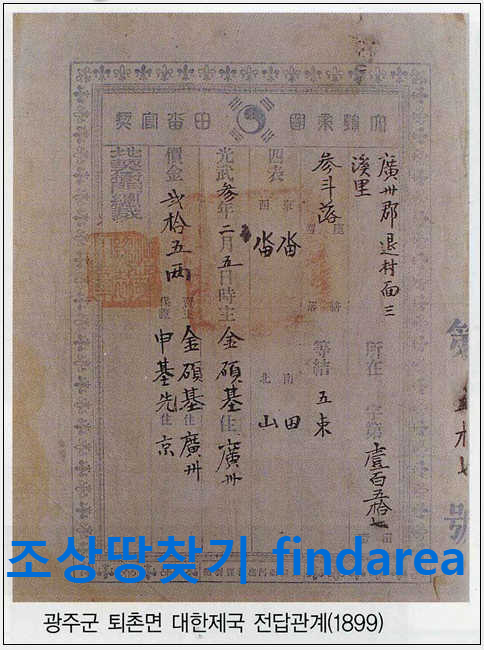 大韓帝國 田畓官契
廣州郡退村面三
溪里
所在 字第壹百五拾七
参斗落 等結 五束
四表 東 畓 南 田
西 畓 北 山
光武参年二月五日時主金碩基住廣州
價金 弐拾五両 賣主 金碩基住廣州
保證 申基先住京
地契衙門總裁
조상땅찾기 findarea
광주군 퇴촌면 대한제국 전답관계(1899)